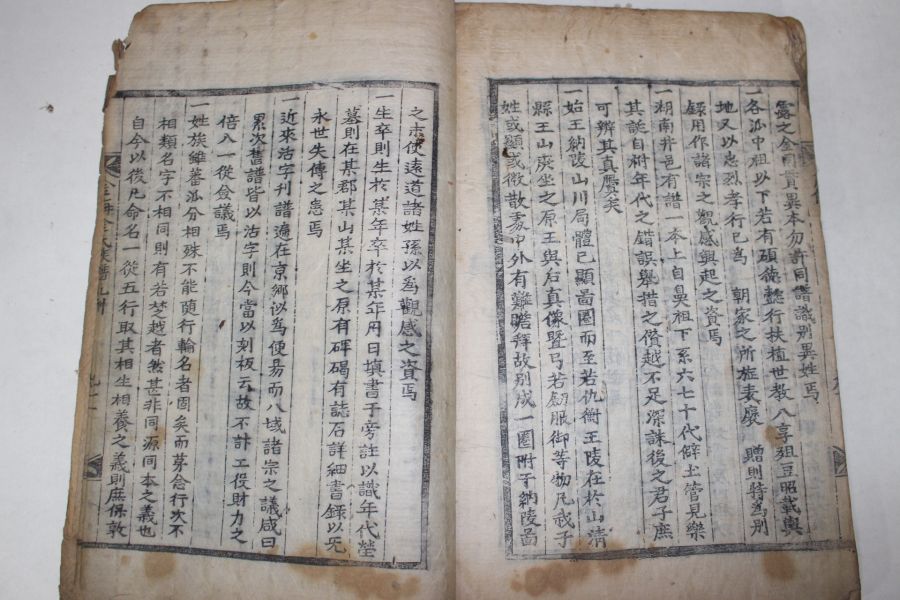 露之金同貫異本勿許同譜識別異姓焉
一各派中祖以下若有碩德懿行扶植世教八享俎豆昭載輿
地又以忠烈孝行已爲 朝家之所旌表廢 贈則特爲別
錄用作諸宗之觀感興起之資焉
一湖南井邑有譜一本上自鼻祖下系六七十代僻土管見樂
其誕自树年代之錯誤舉措之僭越不足深誅後之君子庶
可辨其真贋矣
一始王納陵山川局體已顯啚圈而至若仇衡王陵在於山清
縣王山廢坐之原王與后真像曁弓若釰服御等物凡我子
姓或顯或微散處中外有難瞻釋故別成一圈附于納陵啚
之末使遠道諸姓孫以爲觀感之資焉
一生卒則生於某年卒於某年月日填書于旁註以識年代塋
墓則在某郡某山某坐之原有碑碣有誌石詳細書錄以旡
永世失傳之患焉
一近來活字刊譜遍在京鄉似爲便易而八域諸宗之議咸曰
累次舊譜皆以活字則今當以刻板云故不計工役財力之
倍八一從僉議焉
一姓族雖蕃派分相殊不能隨行輪名者固矣而茅念行次不
相類名字不相同則有若楚越者然甚非同源同本之義也
自今以後凡命名一從五行取其相生相養之義則庶保敦